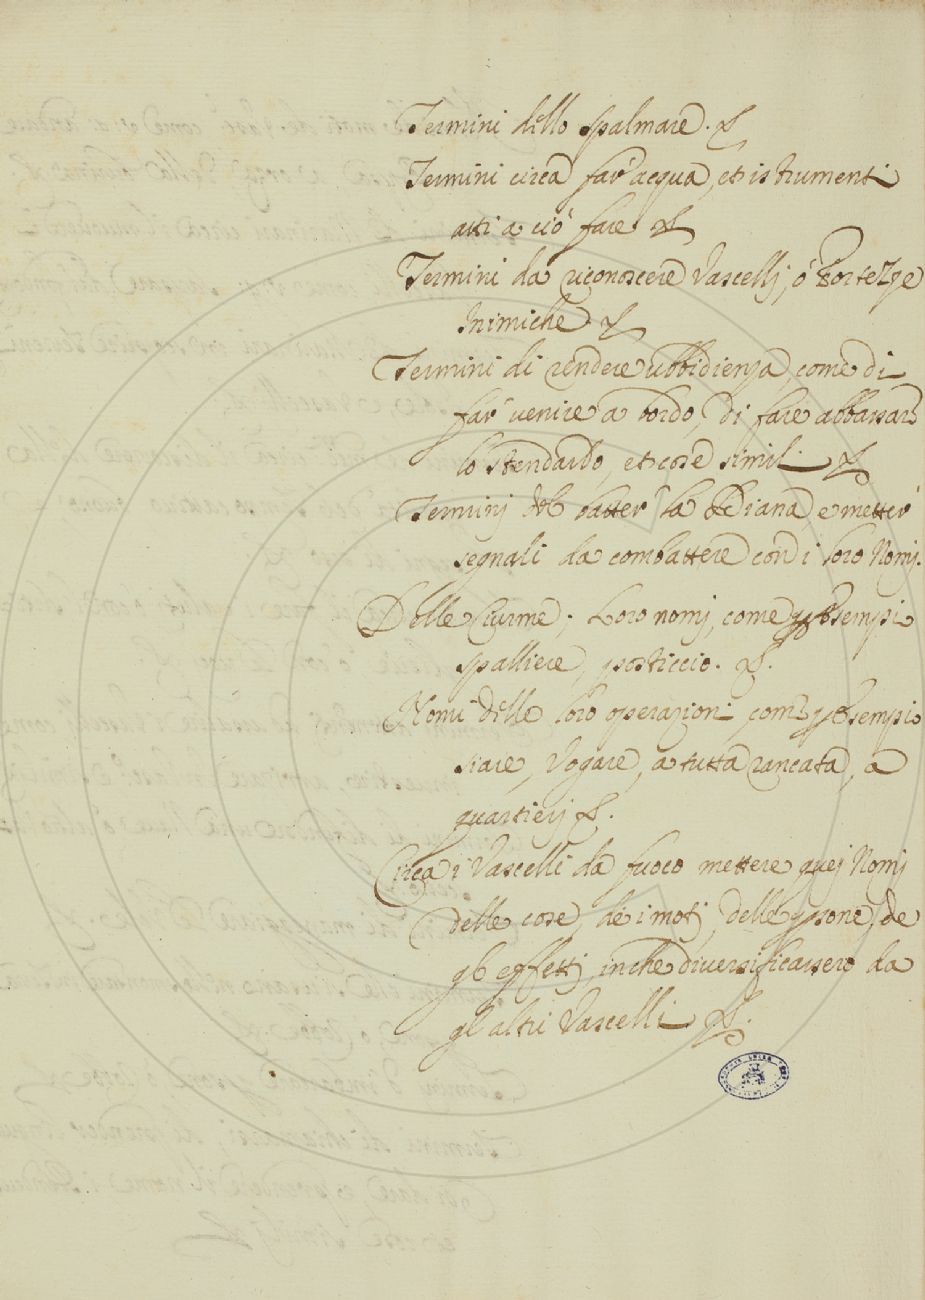 Termini dello spalmare. &
Termini circa far acqua, et istrumenti
atti a ciò fare &
Termini da riconoscere Vascelli, ò Fortezze
Inimiche &
Termini di rendere ubbidienza, come di
far venire a bordo, di fare abbassare
lo stendardo, et cose simili &
Termini del batter la Diana e metter
segnali da combattere con i loro Nomj.
Delle Ciurme; Loro nomj, come p Esempio
spalliere, posticcio. &.
Nomi delle loro operazioni, come p Esempio
siare, Vogare, a tutta rancata, a
quartierj &.
Circa i Vascelli da fuoco mettere quej Nomj
delle cose, de i motj, delle psone, de
gl effetti, inche diversificassero da
gl'altri Vascelli &.